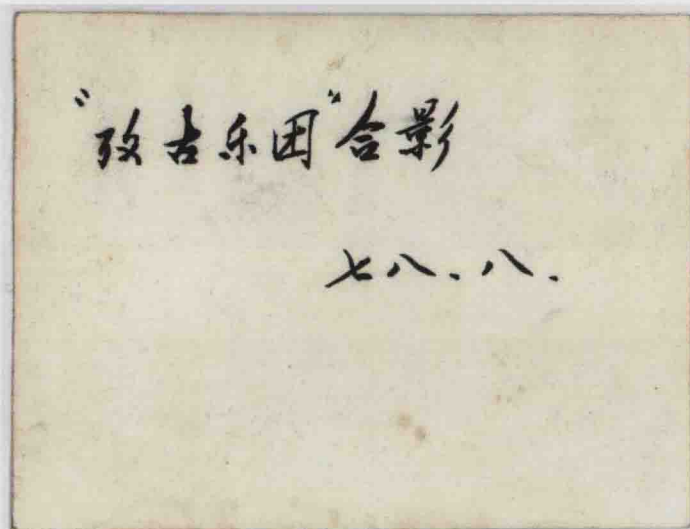 “攷古乐团”合影
七八、八、